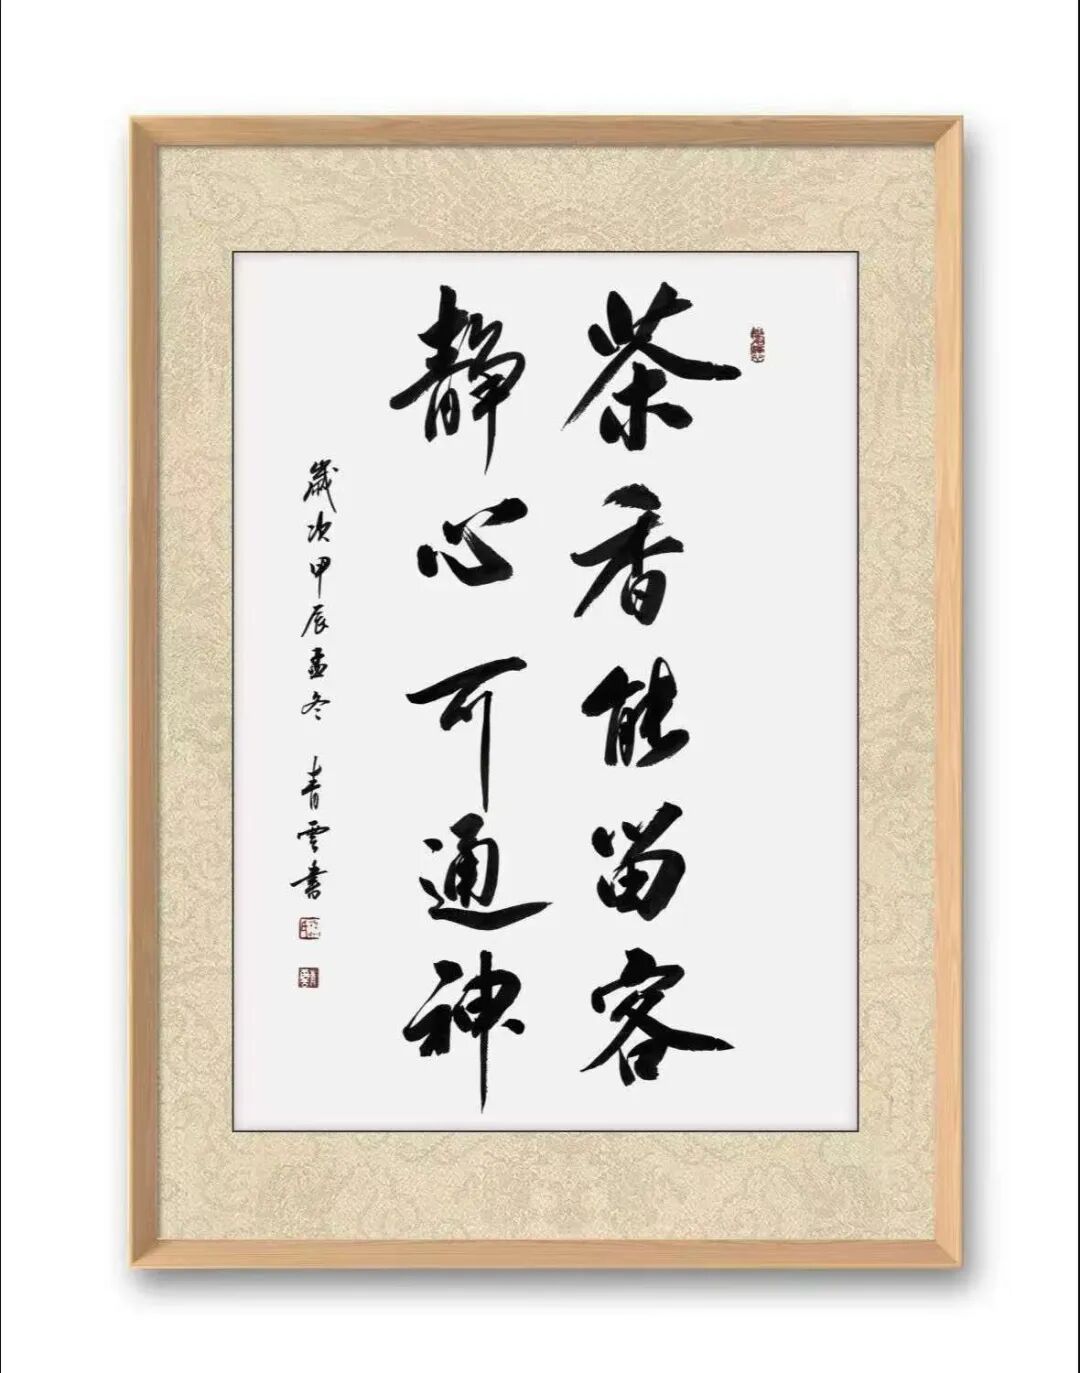 茶香能留客
静心可通神
歲次甲辰孟冬 青雲書